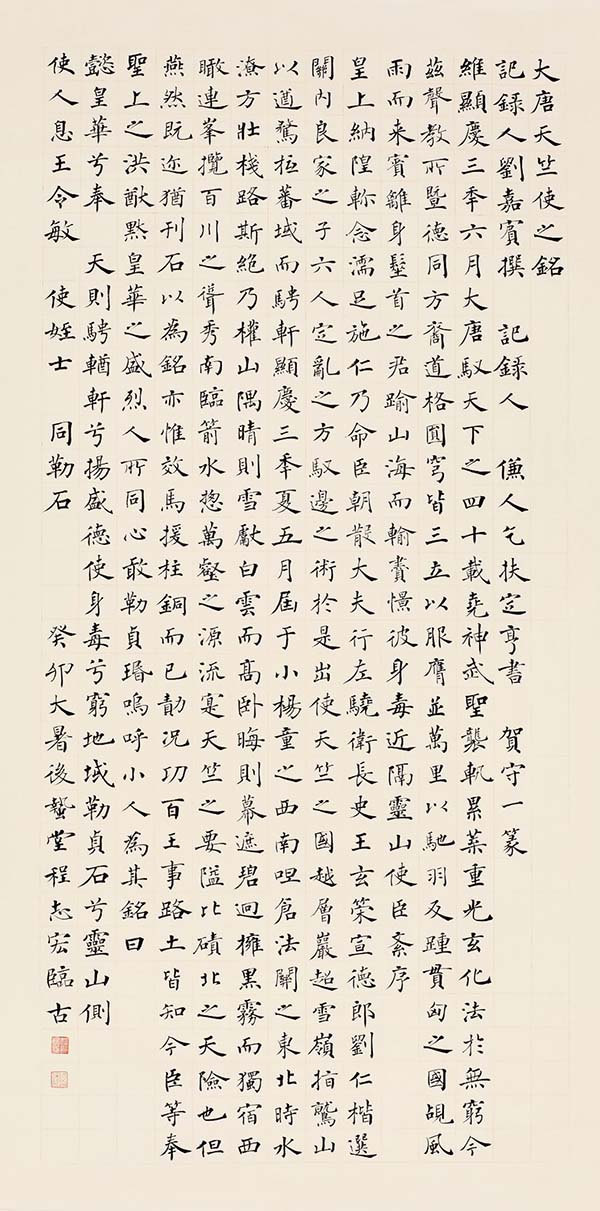 大唐天竺使之銘
記録人劉嘉賓撰 記録人 傔人乞扶定亨書 賀守一篆
維顯慶三年六月大唐馭天下之四十載堯神武聖襲軌累葉重光玄化法於無窮今
茲聲教所暨德同方裔道格圓穹皆三五以服膺並萬里以馳羽及踵貫匈之國覘風
雨而来賓雕身髽首之君踰山海而輸賮憬彼身毒近隔靈山使臣紊序
皇上納隍軫念濡足施仁乃命臣朝散大夫行左驍衛長史王玄策宣德郎劉仁楷選
關内良家之子六人定亂之方馭邊之術於是出使天竺之國越層巖超雪嶺指鷲山
以遒騖拉蕃域而騁軒顯慶三年夏五月屆于小楊童之西南呾倉法關之東北時水
潦方壯棧路斯絶乃權山隅晴則雪獻白雲而高卧晦則幕遮碧迥擁黒霧而獨宿西
瞰連峯攬百川之聳秀南臨箭水揔萬壑之源流寔天竺之要隘比磧北之天險也但
燕然既迩猶刊石以為銘亦惟效馬援柱銅而已勣况功百王事路土皆知今臣等奉
聖上之洪猷㸃皇華之盛烈人所同心敢勒貞瑉嗚呼小人為其銘曰
懿皇華兮奉 天則騁輶軒兮揚盛德使身毒兮窮地域勒貞石兮靈山側
使人息王令敏 使姪士 同勒石 癸卯大暑後蟄堂程志宏臨古